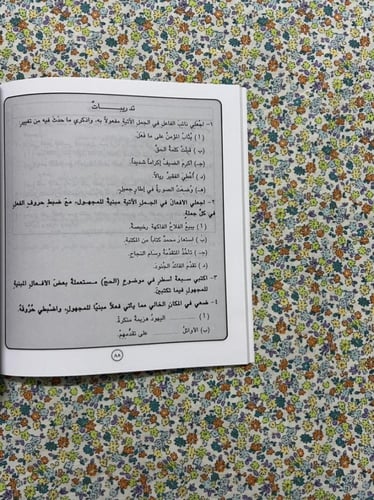 تدريبــــات
١- اجعلي نائب الفاعل في الجمل الآتية مفعولاً به، واذكري ما حدث فيه من تغيير.
( أ ) يُثابُ المؤمنُ على ما فَعَلَ.
(ب) قيلتْ كلمةُ الحقِّ.
(جـ) أُكرمَ الضيفُ إكراماً شديداً.
(د) أُعطِيَ الفقيرُ ريالاً.
(هـ) وُضعتْ الصورةُ في إطارٍ جميلٍ.
٢- اجعلي الأفعال في الجمل الآتية مبنية للمجهول، مع ضبط حروف الفعل
في كل جملة.
( أ ) يبيعُ الفلاحُ الفاكهةَ رخيصةً.
(ب) استعارَ محمدٌ كتاباً من المكتبةِ.
(جـ) تأخذُ المتقدمةُ وسامَ النجاحِ.
(د) تقدّمَ القائدُ الجنودَ.
٣- اكتبي سبعة أسطر في موضوع (الحج) مستعملة بعض الأفعال المبنية
للمجهول فيما تكتبين.
٤- ضعي في المكان الخالي مما يأتي فعلاً مبنيًا للمجهول، واضبطي حُرُوفَهُ.
( أ ) ........ اليهودُ هزيمةً منكرةً.
(ب) الأوائلُ على تقدُّمهِمْ.
٨٨